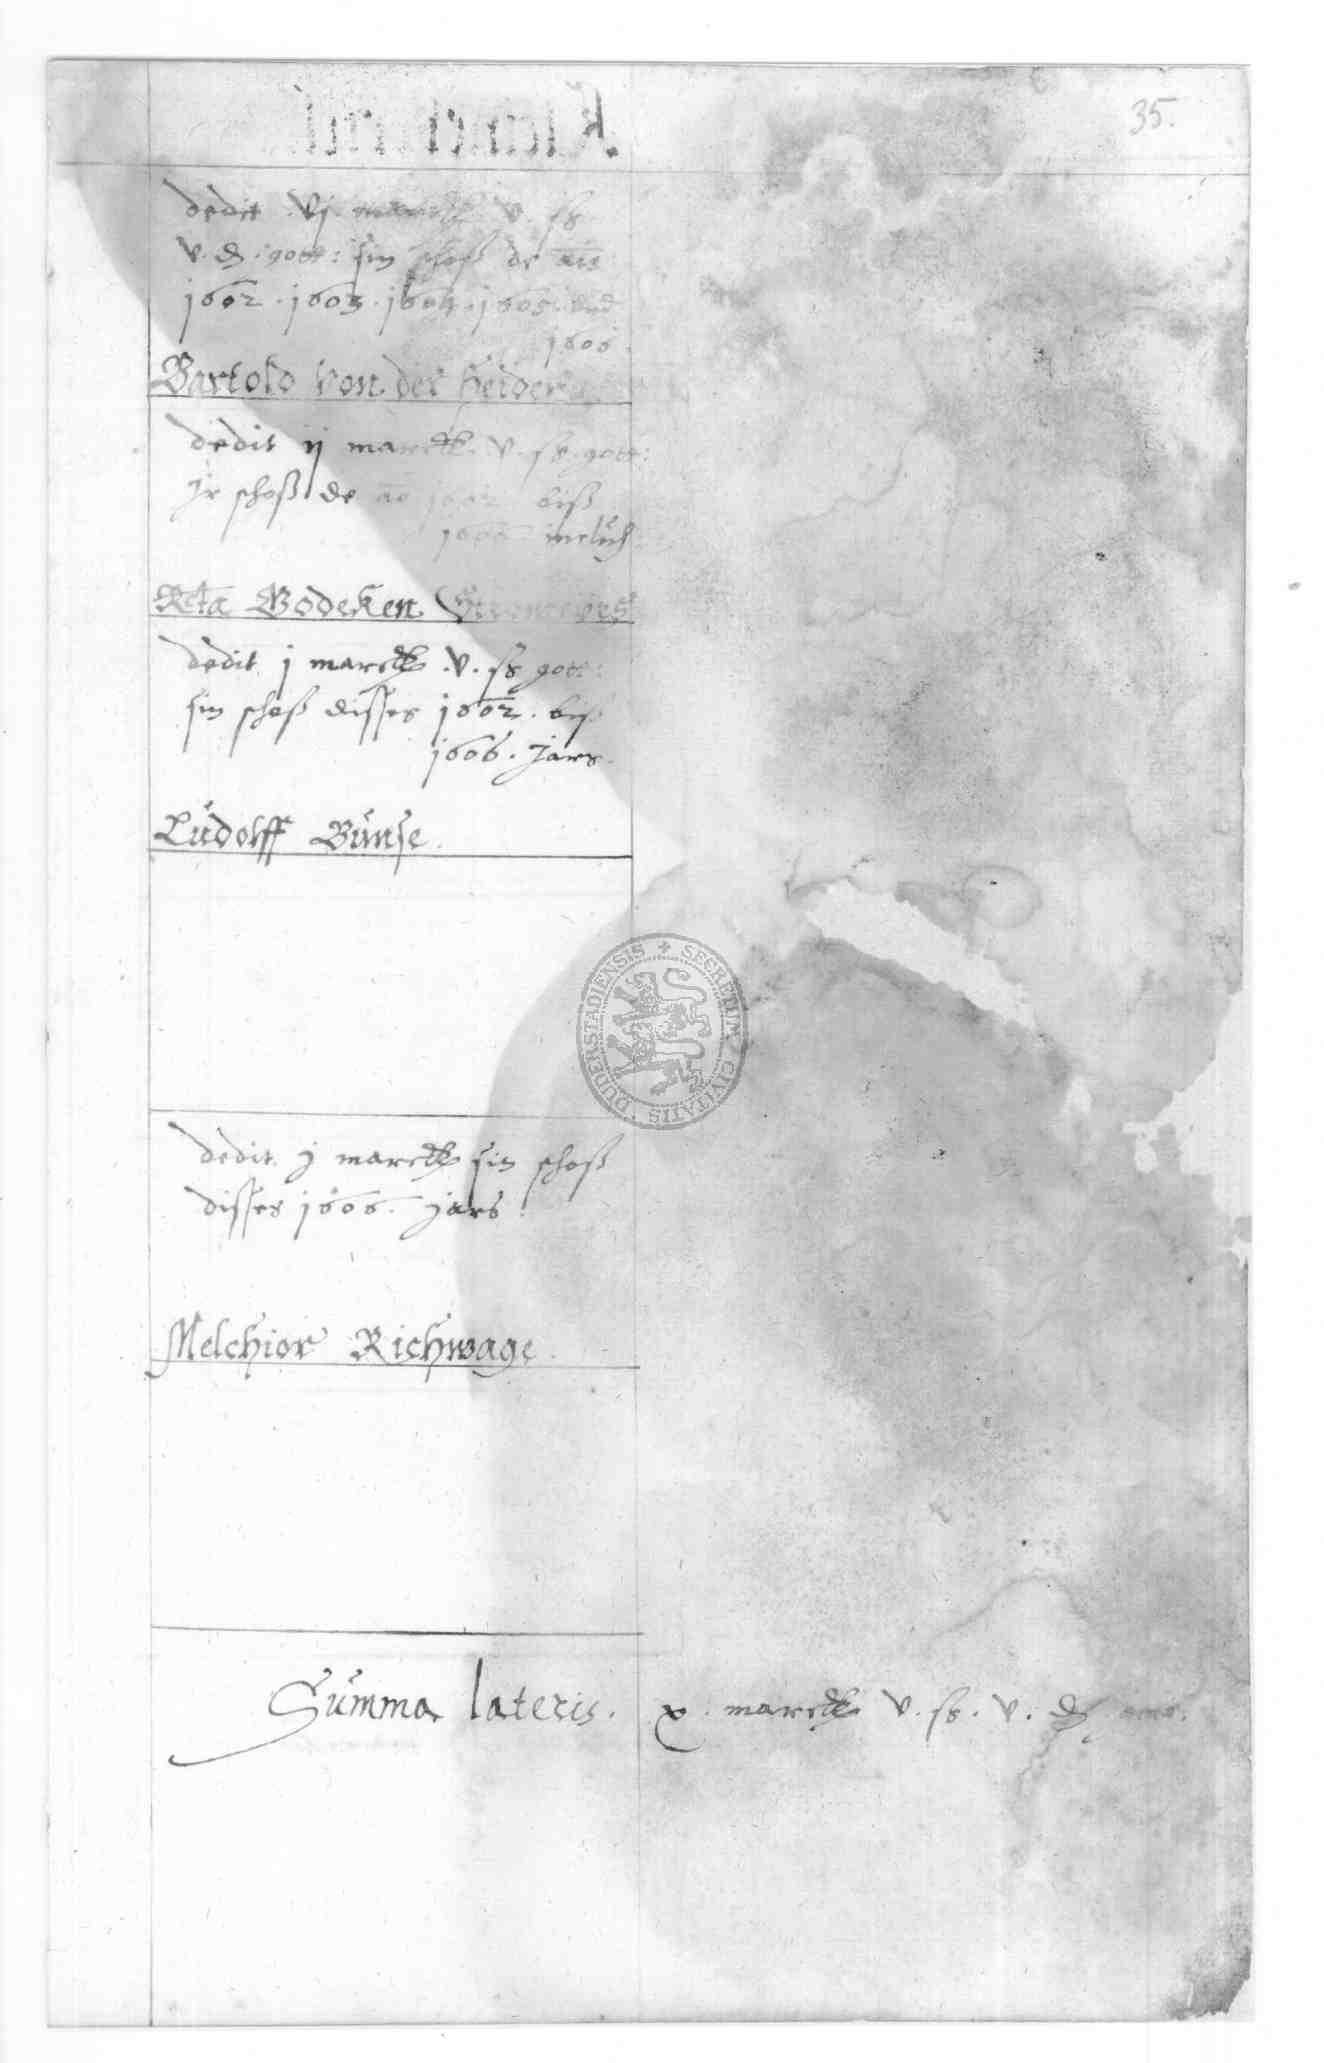 35.
dedit vj marck v. ß
v. d. gott: sin schoß de ais
1602. 1603. 1604. 1605. und
1606.
Bartold von der Heiden
dedit ij marck. v. ß. gott:
Jr schoß de ao 1602 biß
1606 inclus
Bodeken
dedit j marck. v. ß gott:
sin schoß disses 1602. biß
1606. Jars.
Ludolff Bunse.
dedit j marck sin schoß
disses 1606. jars
Melchior Richwage.
Summa lateris. x. marck v. ß. v. d.
SECRETUM CIVITATIS DUDERSTADIENSIS